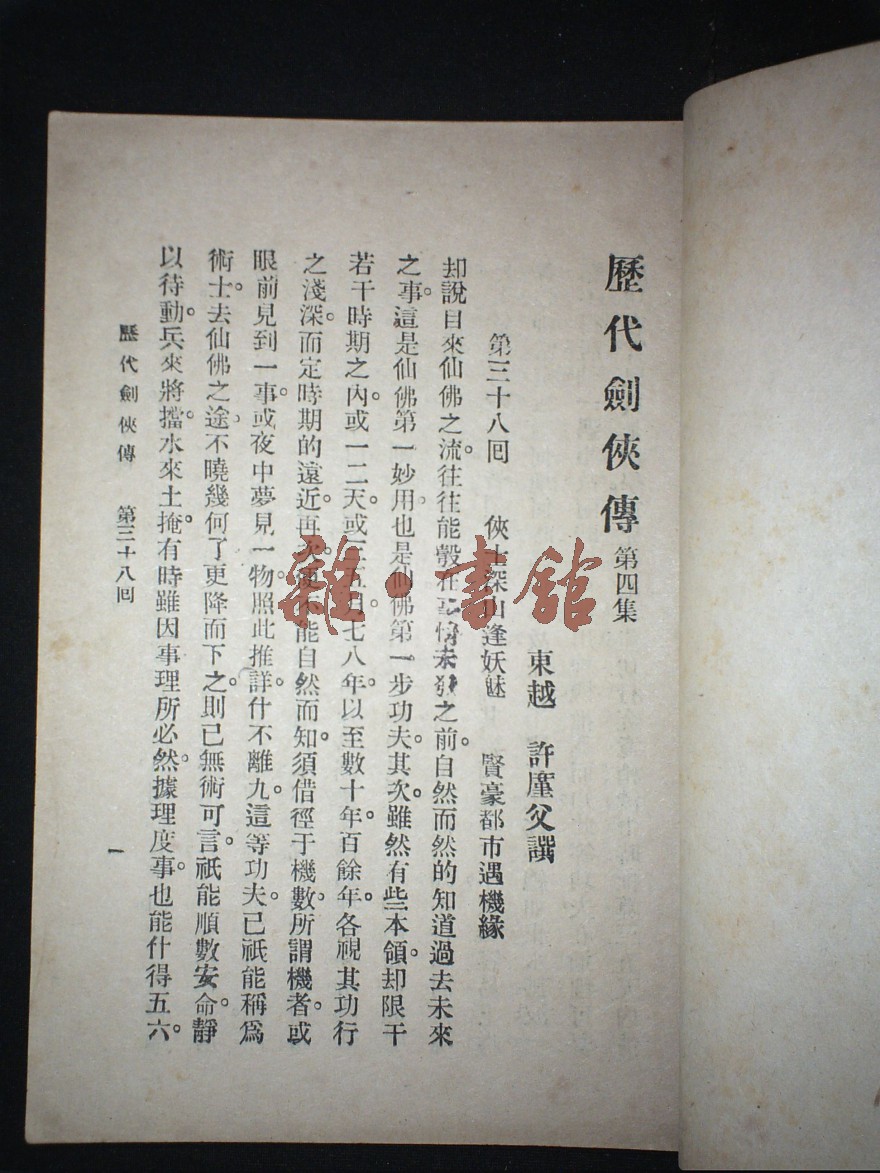 歷代劍俠傳 第四集
東越 許廑父譔
第三十八回 俠士深山逢妖魅 賢豪都市遇機緣
却說自來仙佛之流。往往能彀在事情未發之前。自然而然的知道過去未來
之事。這是仙佛第一妙用。也是仙佛第一步功夫。其次雖然有些本領。却限于
若干時期之內。或一二天。或三五月。七八年。以至數十年。百餘年。各視其功行
之淺深。而定時期的遠近。再次便不能自然而知。須借徑于機數。所謂機者。或
眼前見到一事。或夜中夢見一物。照此推詳。什不離九。這等功夫。已祇能稱爲
術士。去仙佛之途。不曉幾何了。更降而下之。則已無術可言。祇能順數安命。靜
以待動。兵來將擋。水來土掩。有時雖因事理所必然。據理度事。也能什得五六。
歷代劍俠傳 第三十八回
一
雜·書館